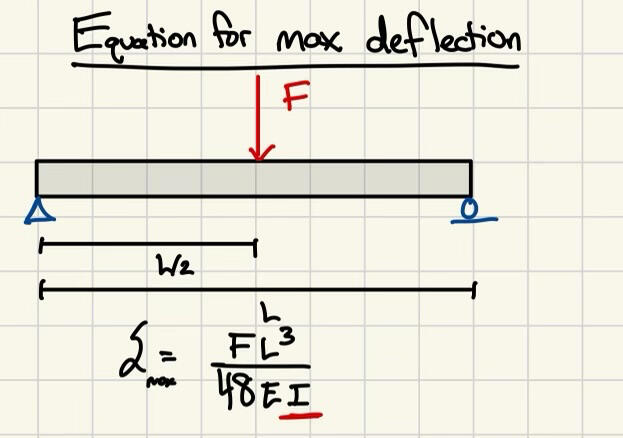 Equation for max deflection
F
L/2
L
δmax = FL³
48EI